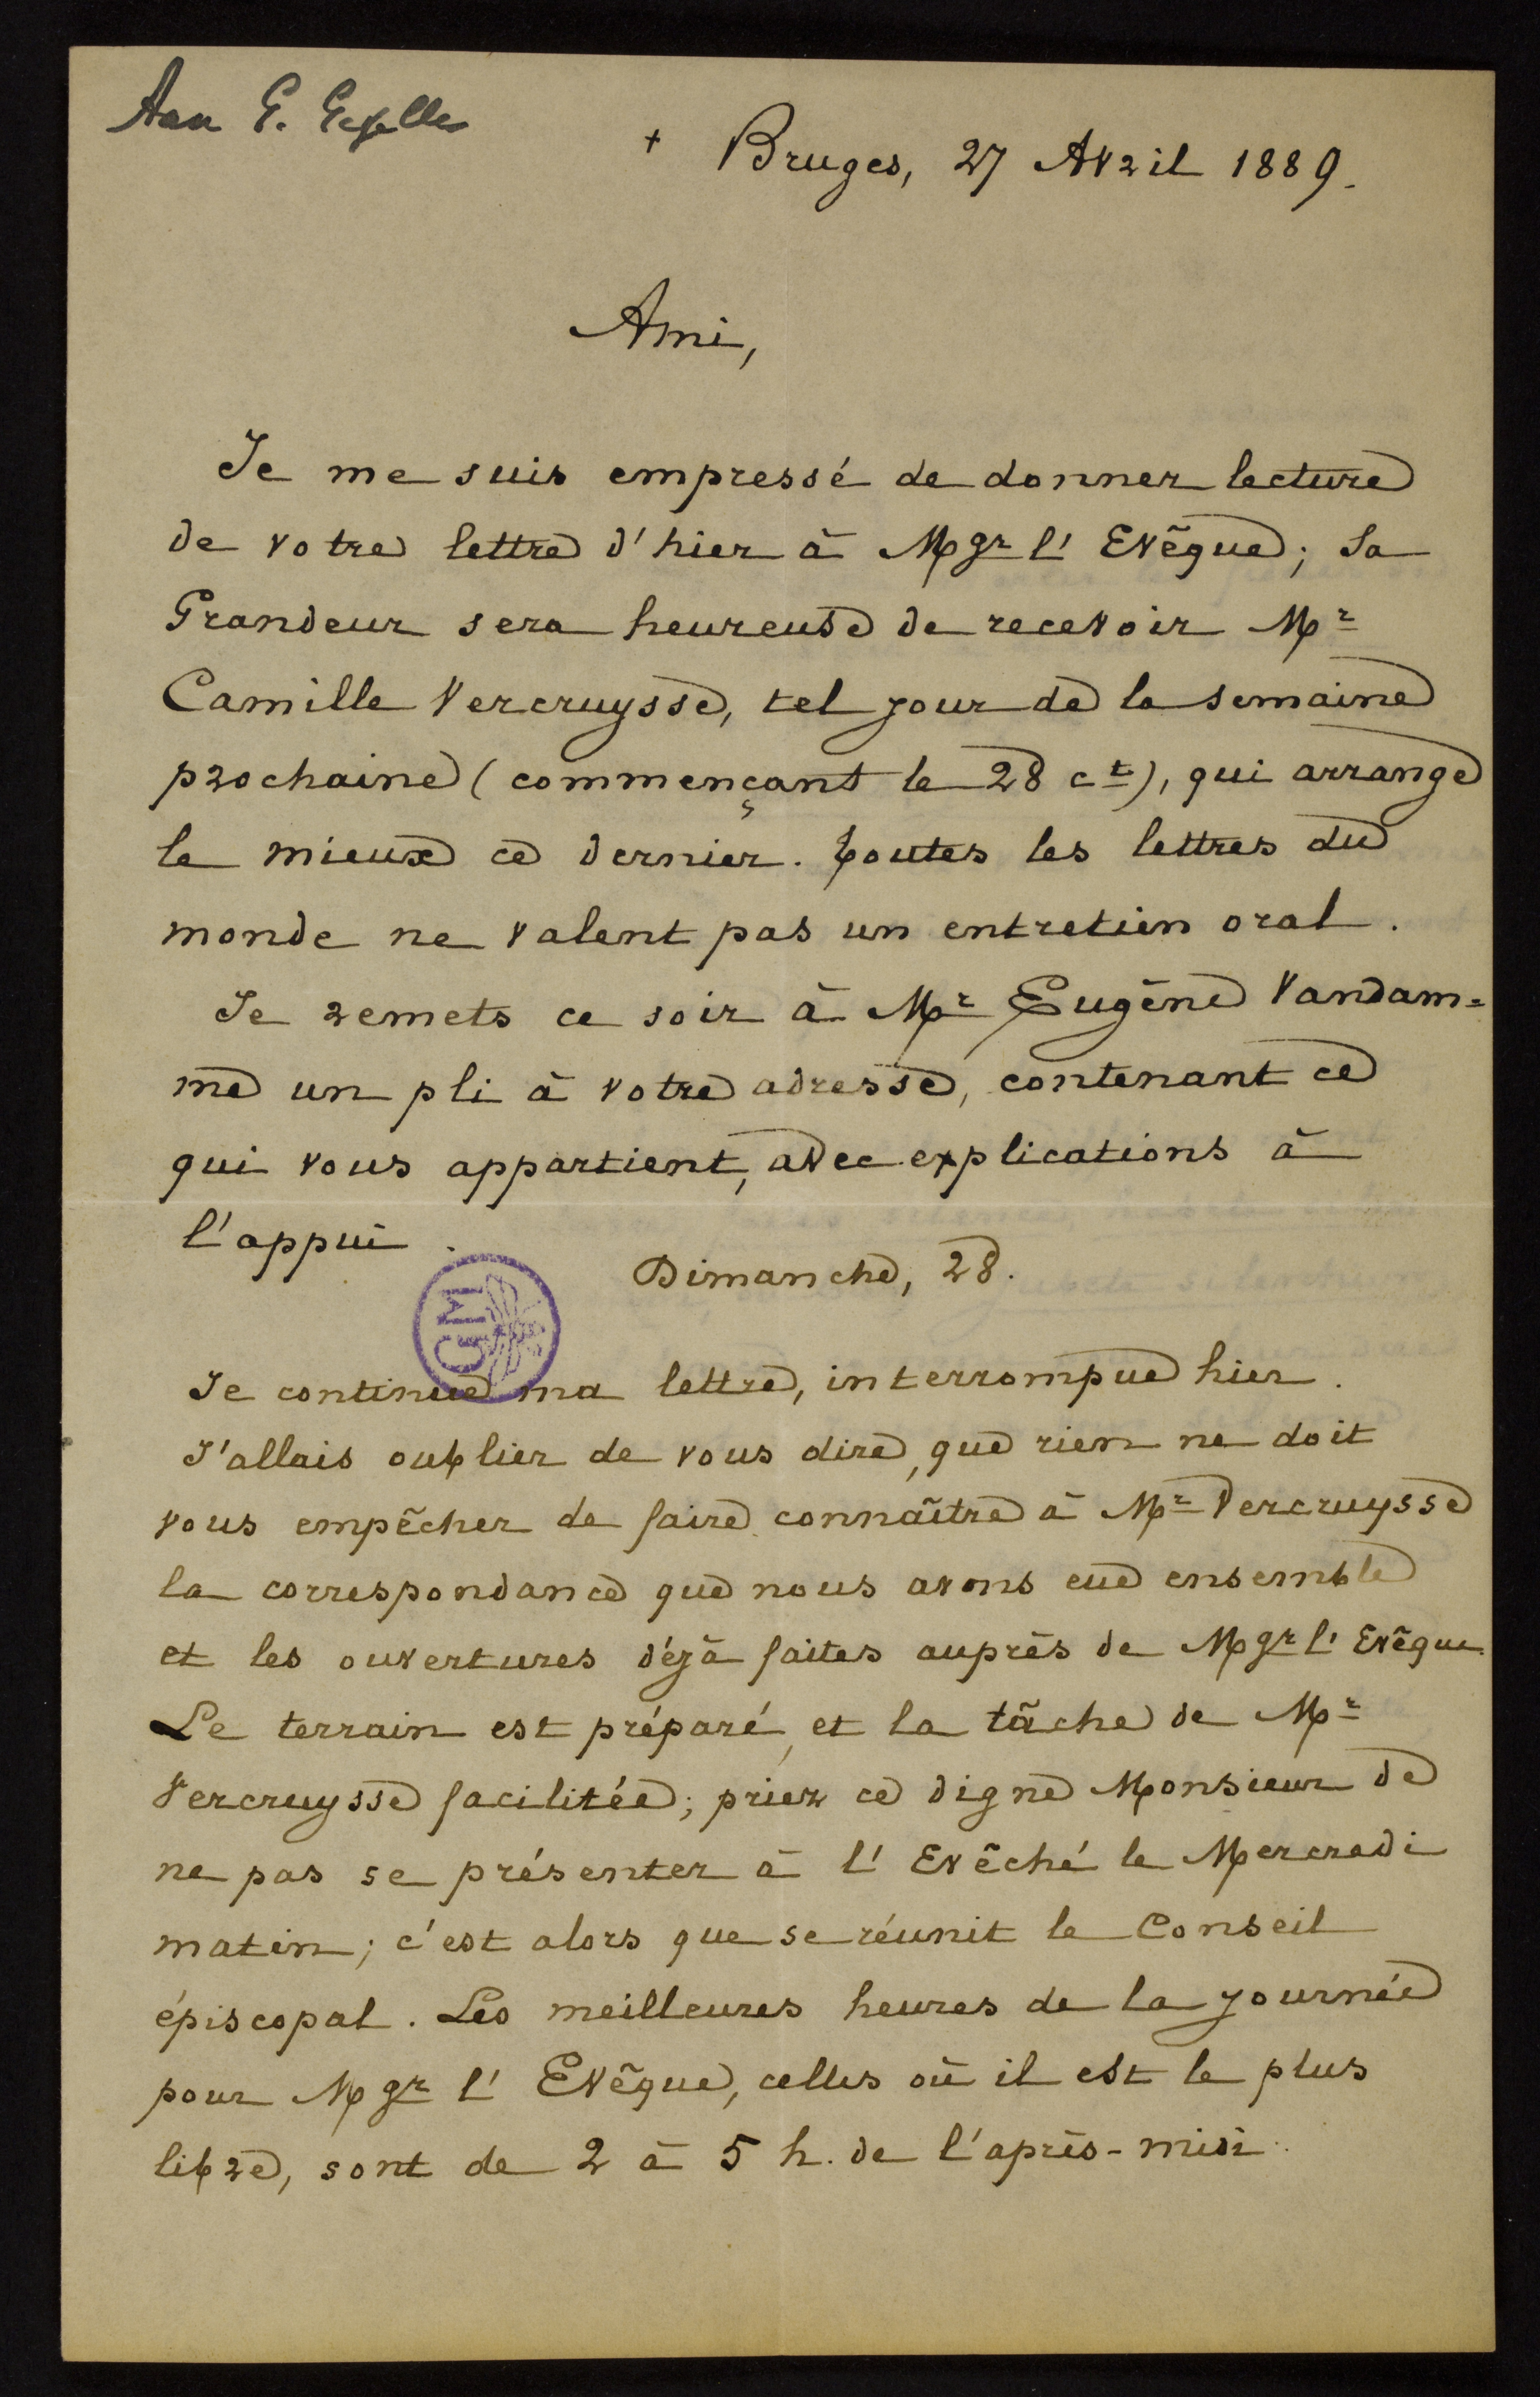 Aan G. Gezelle
+ Bruges, 27 Avril 1889.
Ami,
Je me suis empressé de donner lecture
de votre lettre d'hier à Mgr l'Evêque; Sa
Grandeur sera heureuse de recevoir Mr
Camille Vercruysse, tel jour de la semaine
prochaine (commençant le 28 ct), qui arrange
le mieux ce dernier. Toutes les lettres du
monde ne valent pas un entretien oral.
Je remets ce soir à Mr Eugène Vandam=
me un pli à votre adresse, contenant ce
qui vous appartient, avec explications à
l'appui.
Dimanche, 28.
GM
Je continue ma lettre, interrompue hier.
J'allais oublier de vous dire, que rien ne doit
vous empêcher de faire connaître à Mr Vercruysse
la correspondance que nous avons eue ensemble
et les ouvertures déjà faites auprès de Mgr l'Evêque.
Le terrain est préparé, et la tâche de Mr
Vercruysse facilitée; priez ce digne Monsieur de
ne pas se présenter à l'Evêché le Mercredi
matin; c'est alors que se réunit le Conseil
épiscopal. Les meilleures heures de la journée
pour Mgr l'Evêque, celles où il est le plus
libre, sont de 2 à 5 h. de l'après-midi.